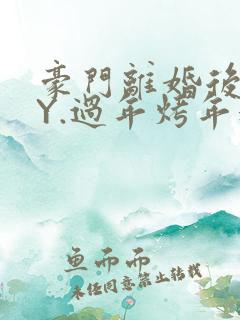 豪門離婚後
Y.過年烤年
鱼而而
未经同意禁止转载